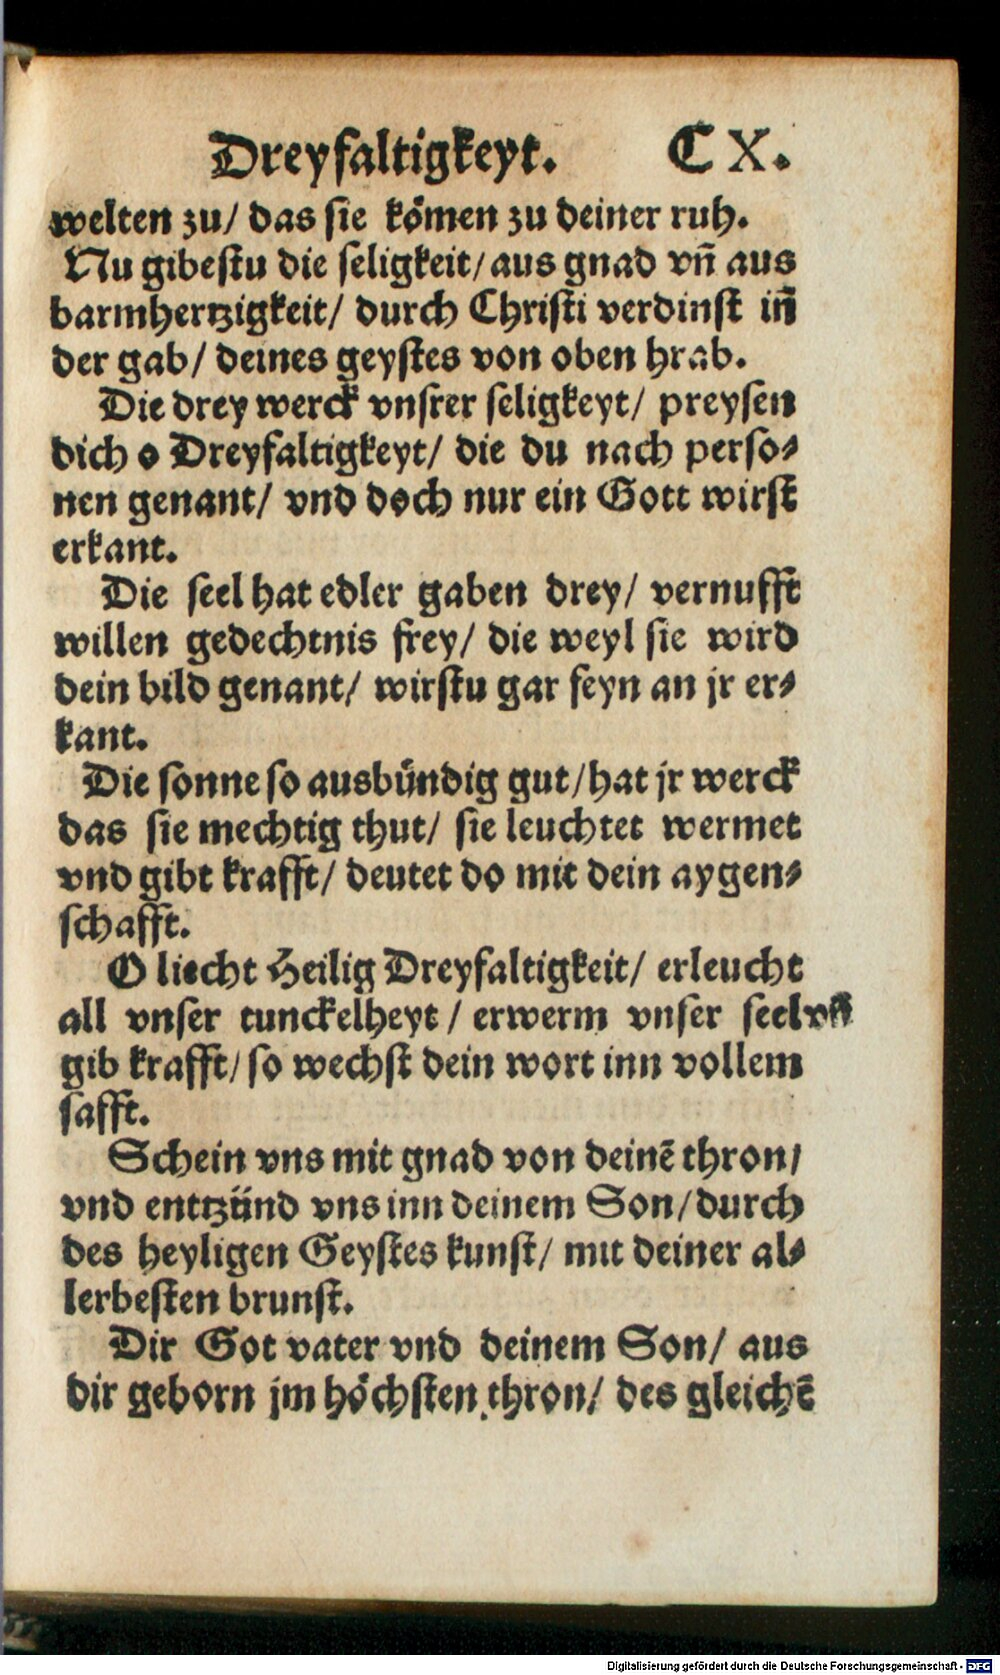 Dreyfaltigkeyt. CX.
welten zu/ das sie kömen zu deiner ruh.
Nu gibestu die seligkeit/ aus gnad vñ aus
barmhertzigkeit/ durch Christi verdinst iñ
der gab/ deines geystes von oben hrab.
Die drey werck vnsrer seligkeyt/ preysen
dich o Dreyfaltigkeyt/ die du nach perso⸗
nen genant/ vnd doch nur ein Gott wirst
erkant.
Die seel hat edler gaben drey/ vernufft
willen gedechtnis frey/ die weyl sie wird
dein bild genant/ wirstu gar feyn an jr er⸗
kant.
Die sonne so ausbündig gut/ hat jr werck
das sie mechtig thut/ sie leuchtet wermet
vnd gibt krafft/ deutet do mit dein aygen⸗
schafft.
O liecht Heilig Dreyfaltigkeit/ erleucht
all vnser tunckelheyt/ erwerm vnser seel vñ
gib krafft/ so wechst dein wort inn vollem
safft.
Schein vns mit gnad von deinē thron/
vnd entzünd vns inn deinem Son/ durch
des heyligen Geystes kunst/ mit deiner al⸗
lerbesten brunst.
Dir Got vater vnd deinem Son/ aus
dir geborn jm höchsten thron/ des gleichē
Digitalisierung gefördert durch die Deutsche Forschungsgemeinschaft - DFG